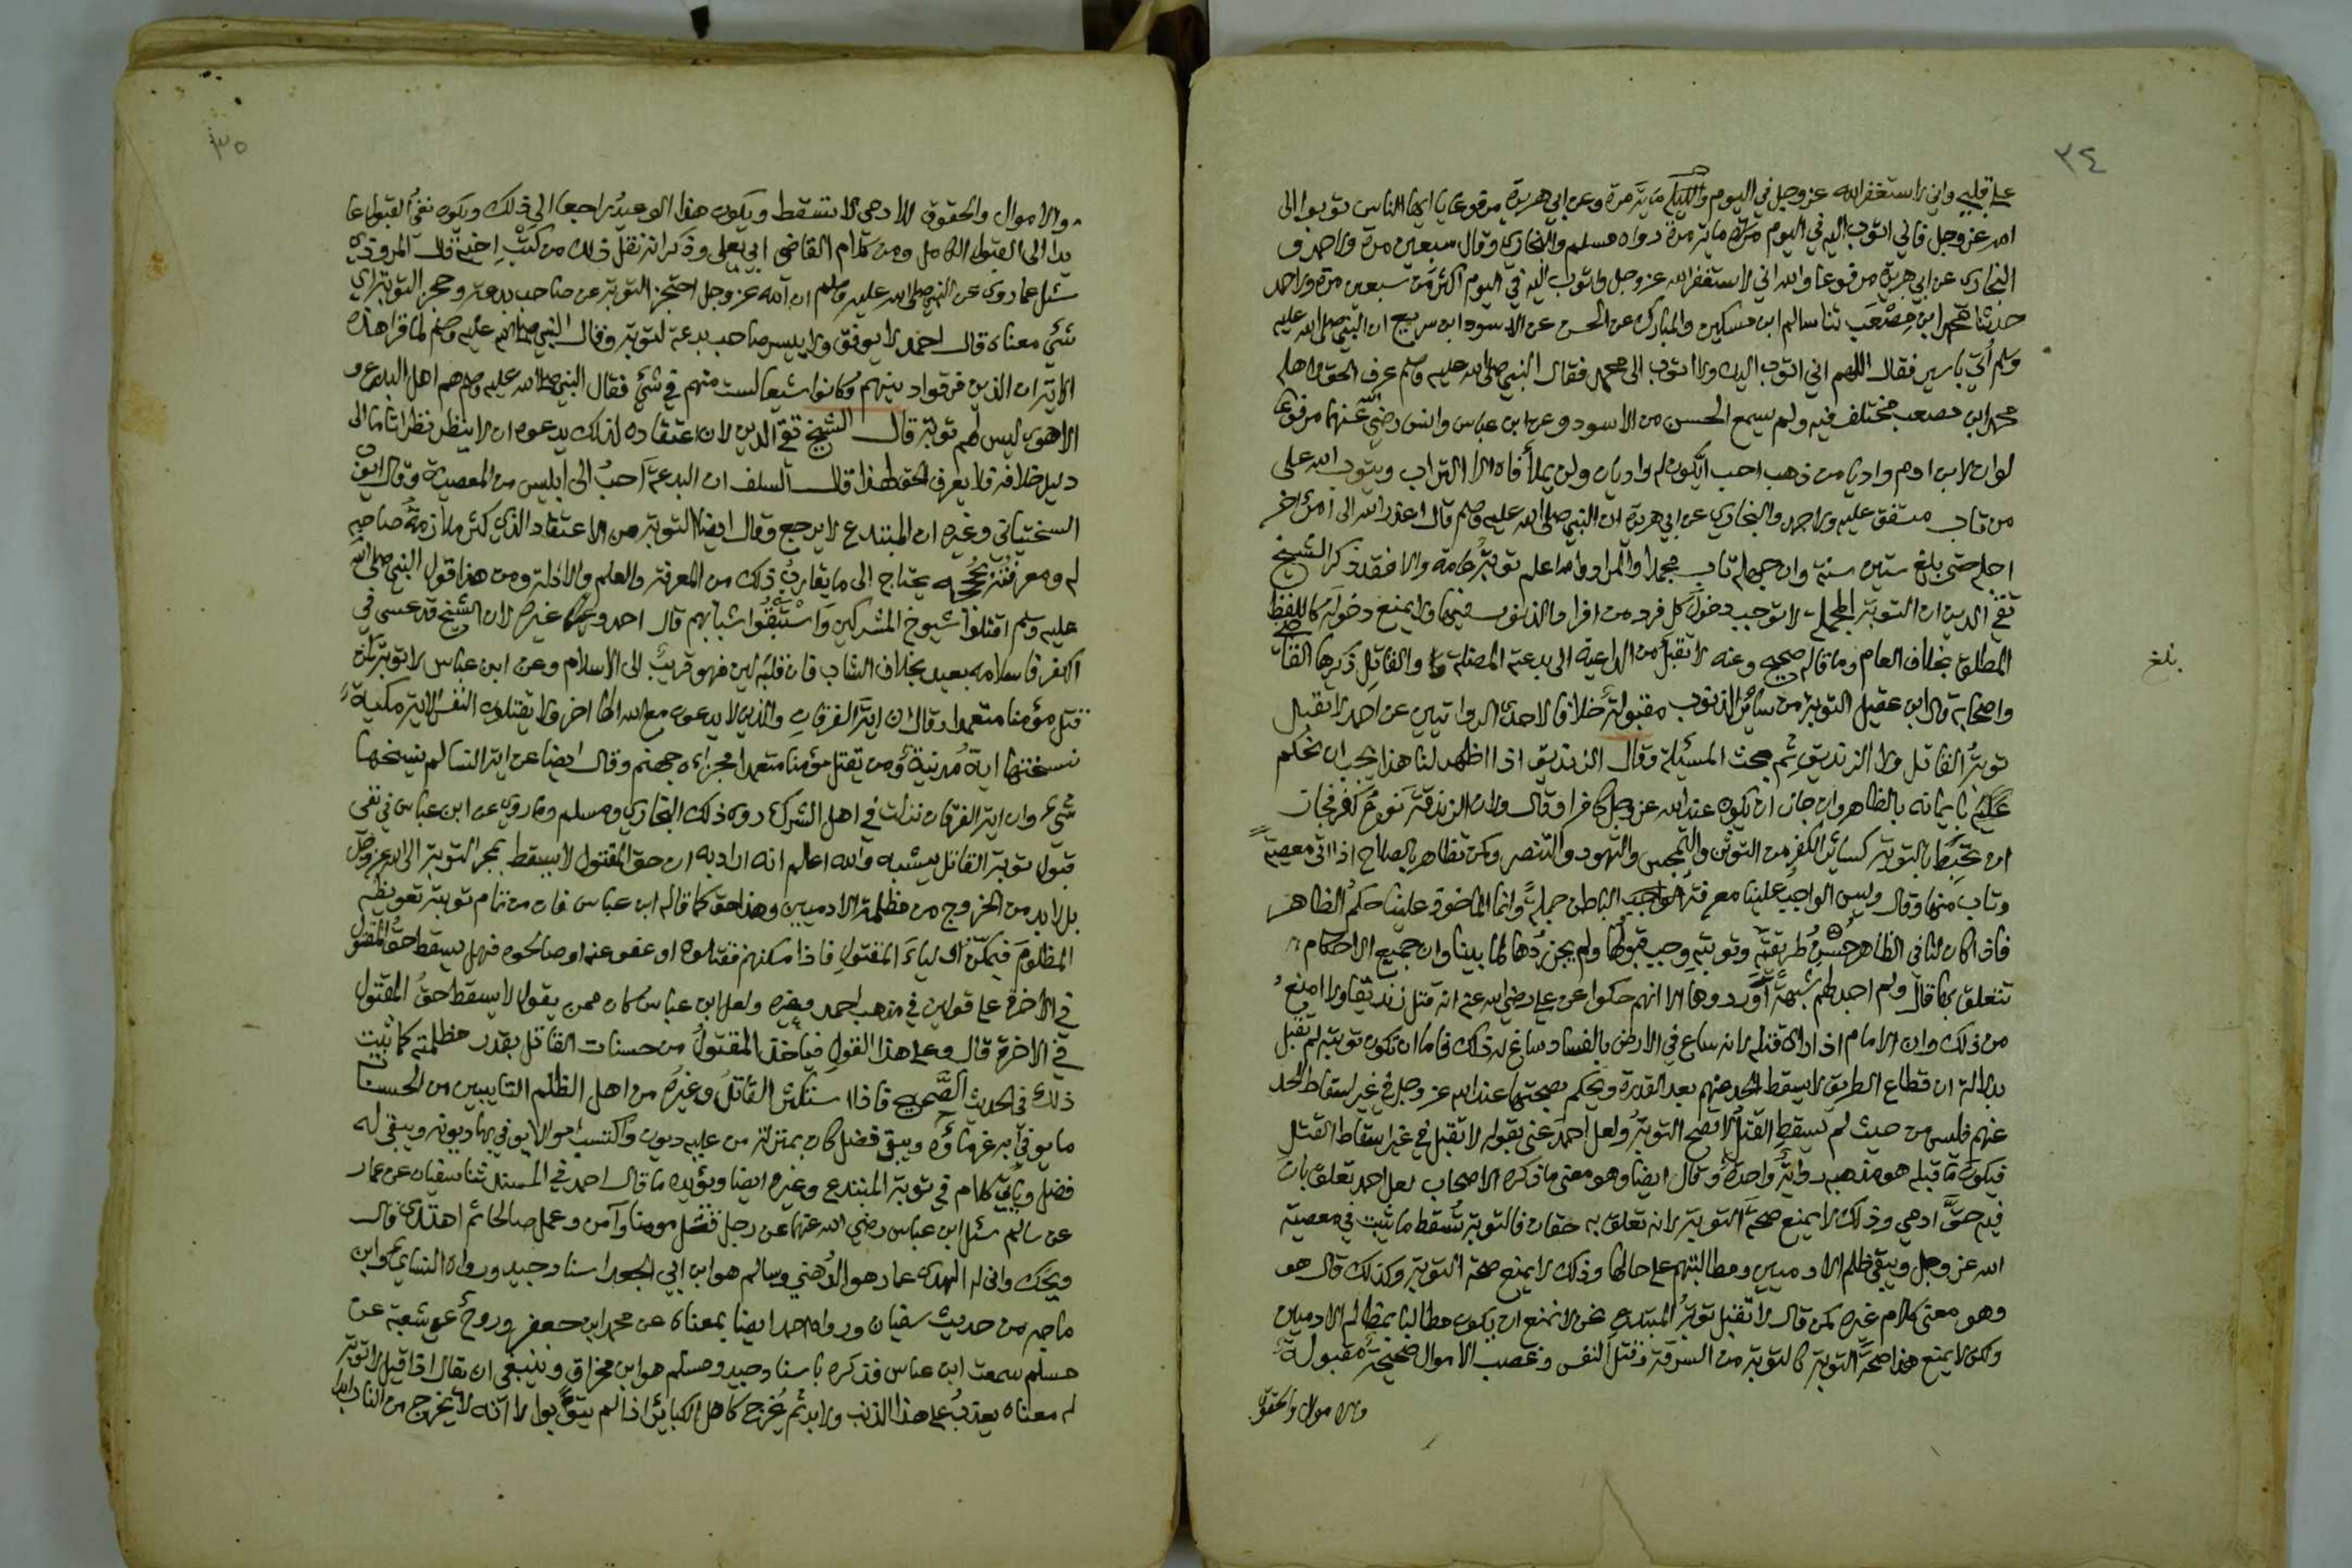 ٣٤
على قلبي واني لاستغفر الله عز وجل في اليوم والليلة مائة مرة وعن ابي هريرة مرفوعا يا ايها الناس توبوا الى
الله عز وجل فاني اتوب اليه في اليوم مائة مرة رواه مسلم والبخاري وقال سبعين مرة ولاحمد و
البخاري عن ابي هريرة مرفوعا والله اني لاستغفر الله عز وجل واتوب اليه في اليوم اكثر من سبعين مرة ولاحمد
حدثنا محمد ابن مصعب ثنا سالم ابن مسكين والمبارك عن الحسن عن الاسود ابن سريع ان النبي صلى الله عليه
وسلم أتي باسير فقال اللهم اني اتوب اليك ولا اتوب الى محمد فقال النبي صلى الله عليه وسلم عرف الحق لاهله
محمد ابن مصعب مختلف فيه ولم يسمع الحسن من الاسود وعن ابن عباس وانس رضي الله عنهما مرفوعا
لوان لابن ادم واديا من ذهب احب ان يكون له واديان ولن يملأ فاه الا التراب ويتوب الله على
من تاب متفق عليه ولاحمد والبخاري عن ابي هريرة ان النبي صلى الله عليه وسلم قال اعذر الله الى امرئ اخر
اجله حتى بلغ ستين سنة وان جهله تاب مجملا والمراد والله اعلم توبة عامة والا فقد ذكر الشيخ
تقي الدين ان التوبة المجملة لا توجب دخول كل فرد من افراد الذنوب فيها ولا يمنع دخوله كاللفظ
المطلق بخلاف العام وما قاله صحيح وعنه لا تقبل من الداعية الى بدعته المضلة والقاتل ذكرها القاضي
بلغ
واصحابه قال ابن عقيل التوبة من سائر الذنوب مقبولة خلافا لاحدى الروايتين عن احمد لا تقبل
توبة القاتل ولا الزنديق ثم بحث المسئلة وقال الزنديق اذا اظهر لنا هذا يجب ان نحكم
بايمانه بالظاهر وان جاز ان يكون عند الله عز وجل كافرا وقال ولان الزندقة نوع كفر فجاز
ان تحبط بالتوبة كسائر الكفر من التوثن والتمجس والتهود والتنصر وكمن تظاهر بالصلاح اذا اتى معصية
وتاب منها وقال وليس الواجب علينا معرفة الباطن جملة وانما الماخوذ علينا حكم الظاهر
فاذا كان لنا في الظاهر حسن طريقته وتوبته وجب قبولها ولم يجز ردها لما بينا وان جميع الاحكام
تتعلق بها قال ولم اجد لهم شبهة اوردوها الا انهم حكوا عن علي رضي الله عنه انه قتل زنديقا ولا امنع
من ذلك وان الامام اذا راى قتله لانه ساع في الارض بالفساد ساغ له ذلك فاما ان تكون توبته لم تقبل
بدلالة ان قطاع الطريق لا يسقط الحد عنهم بعد القدرة ويحكم بصحتها عند الله عز وجل في غير اسقاط الحد
عنهم فليس من حيث لم يسقط القتل لا تصح التوبة ولعل احمد عنى بقوله لا تقبل في غير اسقاط القتل
فيكون ما قبله هو مذهبه رواية واحدة وقال ايضا وهو معنى ما ذكره الاصحاب لعل احمد تعلق بان
فيه حق ادمي وذلك لا يمنع صحة التوبة لانه تعلق به حقان فالتوبة تسقط ما ثبت في معصية
الله عز وجل ويبقى ظلم الادميين ومطالبتهم على حالها وذلك لا يمنع صحة التوبة وكذلك قال هو
وهو معنى كلام غيره لمن قال لا تقبل توبة المبتدع نحن لا نمنع ان يكون مطالبا بمظالم الادميين
ولكن لا يمنع هذا صحة التوبة كالتوبة من السرقة وقتل النفس وغصب الاموال صحيحة مقبولة
والاموال والحقوق
٣٥
والاموال والحقوق للادمي لا تسقط ويكون هذا الوعيد راجعا الى ذلك ويكون نفي القبول عا
يدا الى القبول الكامل ومن كلام القاضي ابي يعلى وذكر انه نقل ذلك من كتب اخيه قال المروذي
سئل عما روي عن النبي صلى الله عليه وسلم ان الله عز وجل احتجز التوبة عن صاحب بدعة وحجز التوبة اي
شئ معناه قال احمد لا يوفق ولا ييسر صاحب بدعة لتوبة وقال النبي صلى الله عليه وسلم لما قرأ هذه
الاية ان الذين فرقوا دينهم وكانوا شيعا لست منهم في شئ فقال النبي صلى الله عليه وسلم هم اهل البدع و
الاهوى ليس لهم توبة قال الشيخ تقي الدين لان اعتقاده لذلك يدعوه ان لا ينظر نظرا تاما الى
دليل خلافه فلا يعرف الحق ولهذا قال السلف ان البدعة احب الى ابليس من المعصية وقال ايوب
السختياني وغيره ان المبتدع لا يرجع وقال ايضا التوبة من الاعتقاد الذي كثر ملازمة صاحبه
له ومعرفته بحججه يحتاج الى ما يقارب ذلك من المعرفة والعلم والادلة ومن هذا قول النبي صلى الله
عليه وسلم اقتلوا شيوخ المشركين واستبقوا شبابهم قال احمد وغيره لان الشيخ قد عسى في
الكفر فاسلامه بعيد بخلاف الشاب فان قلبه لين فهو قريب الى الاسلام وعن ابن عباس لا توبة لمن
قتل مؤمنا متعمدا وقال ان اية الفرقان والذين لا يدعون مع الله الها اخر ولا يقتلون النفس الاية مكية
نسختها اية مدنية ومن يقتل مؤمنا متعمدا فجزاؤه جهنم وقال ايضا عن اية النسا لم ينسخها
شيء وان اية الفرقان نزلت في اهل الشرك روى ذلك البخاري ومسلم وما روي عن ابن عباس في نفي
قبول توبة القاتل يشبه والله اعلم انه اراد به ان حق المقتول لا يسقط بمجرد التوبة الى الله عز وجل
بل لا بد من الخروج من مظلمة الادميين وهذا حق كما قاله ابن عباس فان من تمام توبته تعويض
المظلوم فيمكن اولياء المقتول فاذا مكنهم فقتلوه او عفو عنه او صالحوه فهل يسقط حق المقتول
في الاخرة على قولين في مذهب احمد وغيره ولعل ابن عباس كان ممن يقول لا يسقط حق المقتول
في الاخرة قال وعلى هذا القول فياخذ المقتول من حسنات القاتل بقدر مظلمته كما ثبت
ذلك في الحديث الصحيح فاذا استكثر القاتل وغيره من اهل الظلم التايبين من الحسنات
ما يوفي به غرماؤه ويبقى فضل كان بمنزلة من عليه ديون واكتسب اموالا يوفي بها ديونه ويبقى له
فضل وياتي كلام في توبة المبتدع وغيره ايضا ويؤيده ما قال احمد في المسند ثنا سفيان عن عمار
عن سالم سئل ابن عباس رضي الله عنهما عن رجل قتل مومنا وآمن وعمل صالحا ثم اهتدى قال
ويحك وانى له الهدى عمار هو الدهني وسالم هو ابن ابي الجعد اسناد جيد ورواه النساي وابن
ماجه من حديث سفيان ورواه احمد ايضا بمعناه عن محمد ابن جعفر وروح عن شعبة عن
مسلم سمعت ابن عباس فذكره باسناد جيد ومسلم هو ابن مخراق وينبغي ان يقال اذا قيل لا توبة
له معناه يعذب على هذا الذنب ولا بد ثم يخرج كاهل الكبائر اذا لم يتوبوا لا انه لا يخرج من النار ابدا